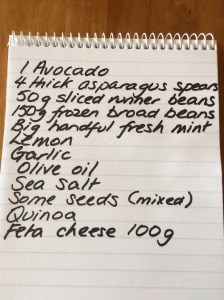 1 Avocado
4 thick asparagus spears
50g sliced runner beans
150g frozen broad beans
Big handful fresh mint
Lemon
Garlic
Olive oil
Sea salt
Some seeds (mixed)
Quinoa
Feta cheese 100g